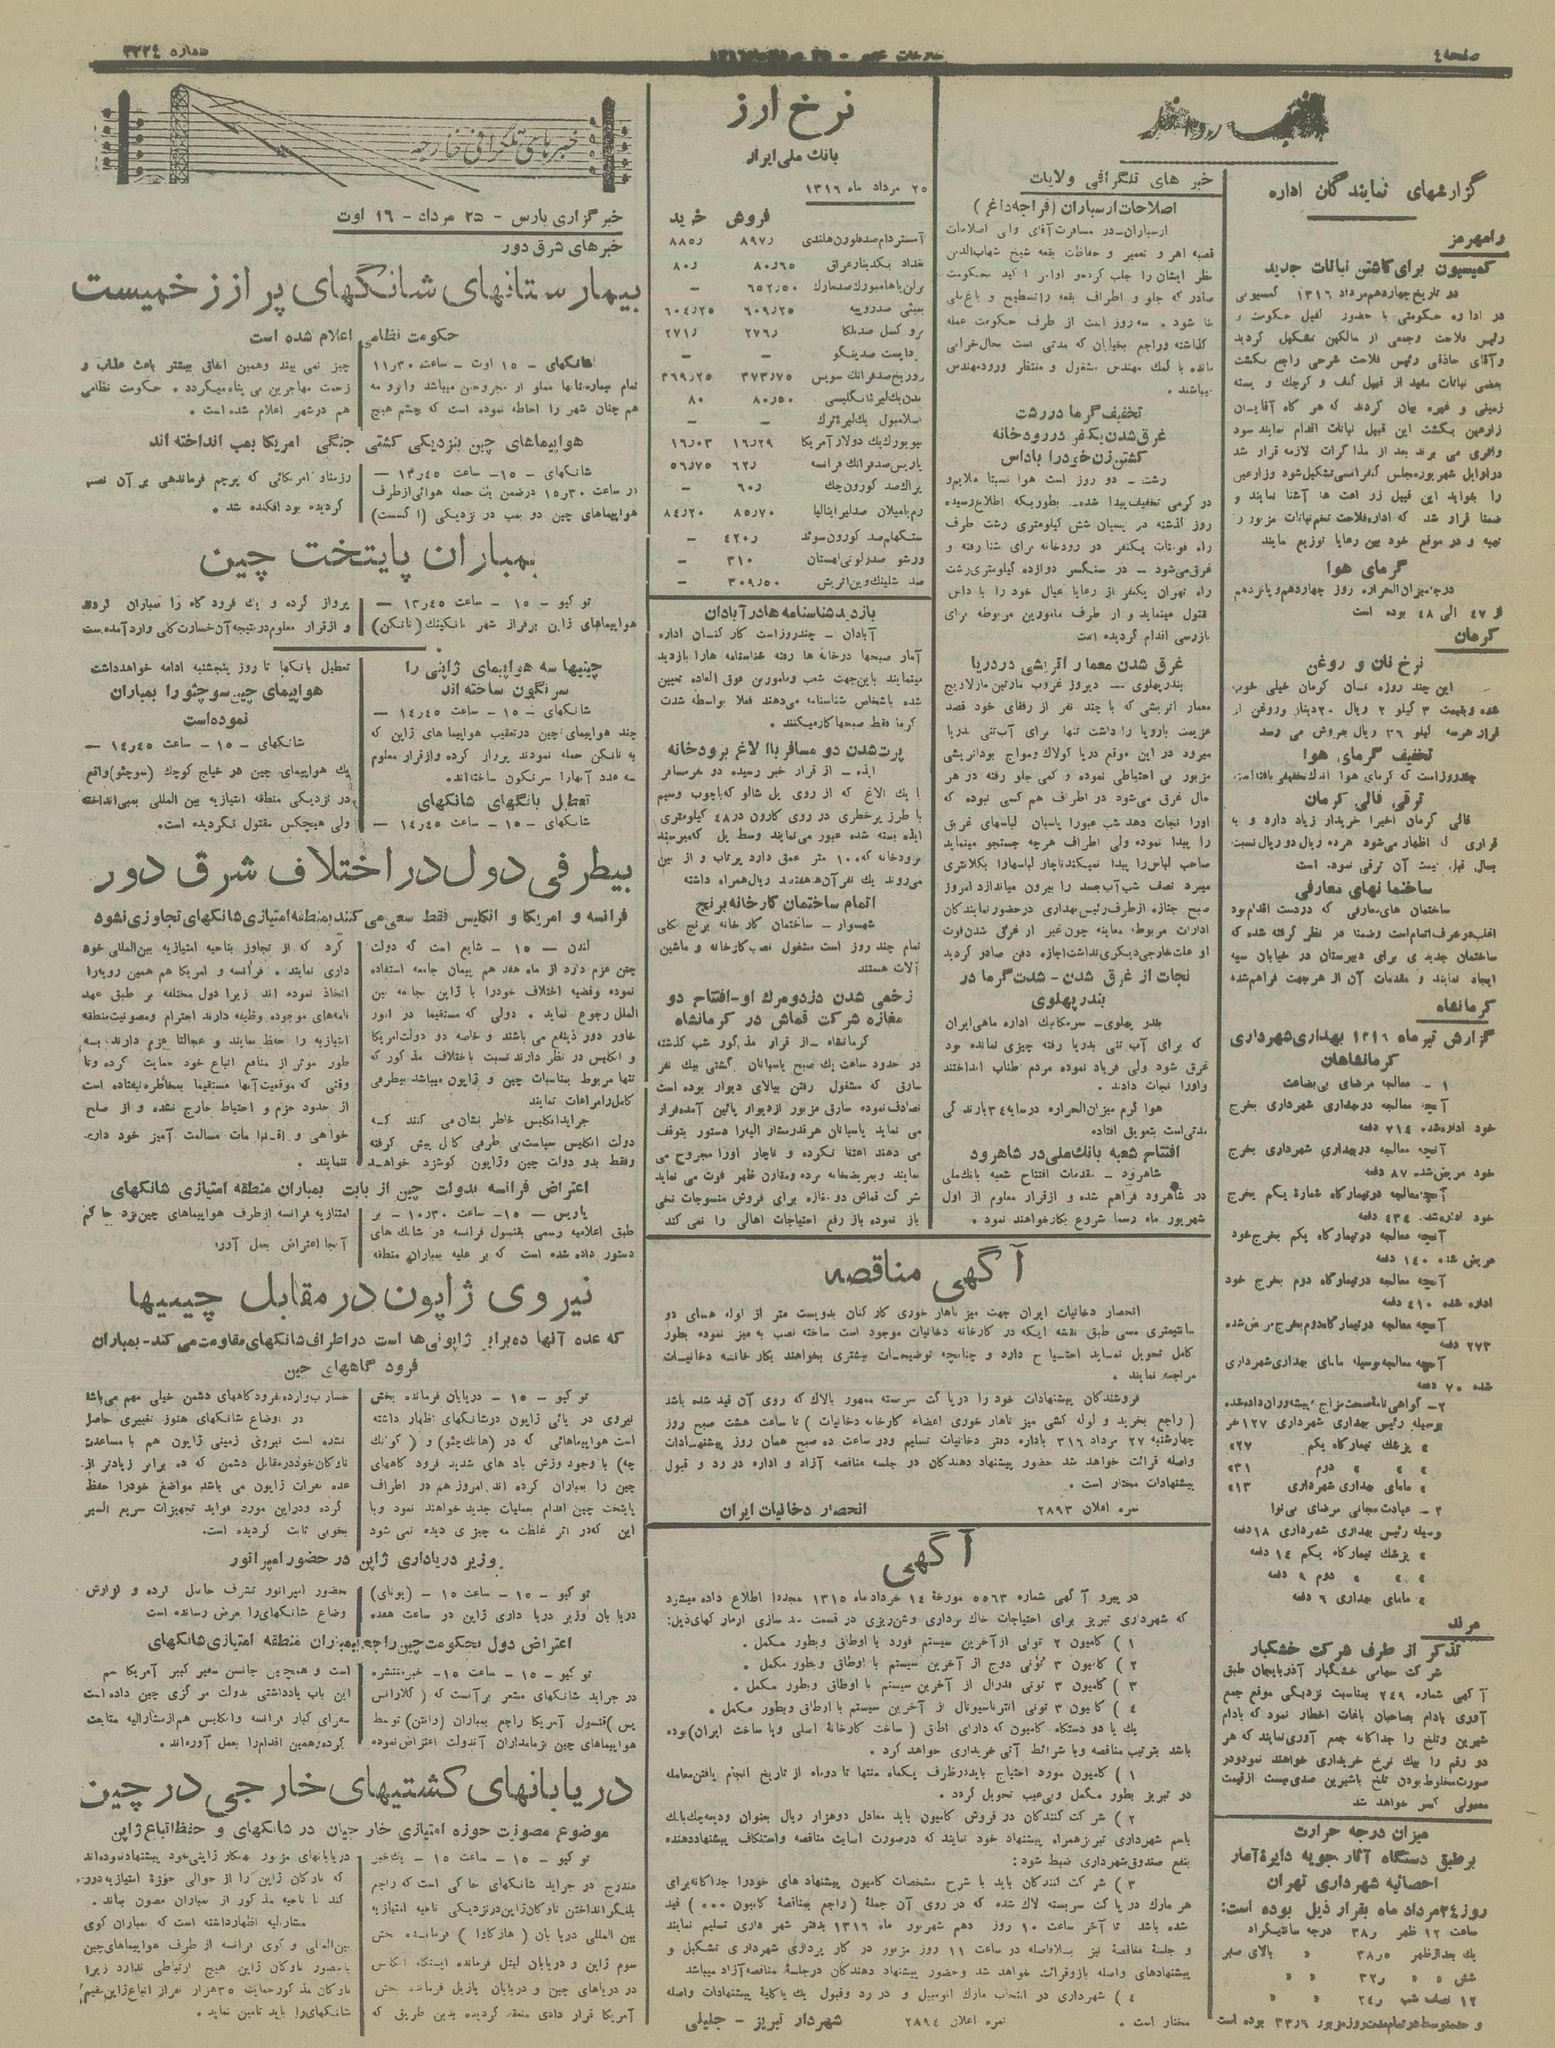 صفحه ۴
شماره ۳۲۲۴
گزارشهای نمایندگان اداره
رامهرمز
کمیسیون برای کاشتن نباتات جدید
در تاریخ چهاردهم مرداد ۱۳۱۶ کمیسیونی
رئیس فلاحت وجمعی از مالکین تشکیل گردید
وآقای حاذقی رئیس فلاحت شرحی راجع بکشت
بعضی نباتات مفید از قبیل کنف و کرچک و پسته
زمینی و غیره بیان کردند که هر گاه آقایان
زارعین بکشت این قبیل نباتات اقدام نمایند سود
وافری می برند بعد از مذاکرات لازمه قرار شد
ضمنا قرار شد که اداره فلاحت تخم نباتات مزبور را
تهیه و در موقع خود بین رعایا توزیع نمایند
گرمای هوا
درجه میزان الحراره روز چهاردهم و پانزدهم
از ۴۷ الی ۴۸ بوده است
کرمان
نرخ نان و روغن
این چند روزه نان کرمان خیلی خوب
شده وبقیمت ۳ کیلو ۲ ریال ۲۰ دینار وروغن از
قرار هر سه کیلو ۳۶ ریال بفروش می رسد
تخفیف گرمای هوا
چند روز است که گرمای هوا اندک تخفیفی یافته است
ترقی قالی کرمان
قالی کرمان اخیرا خریدار زیاد دارد و به
قراری که اظهار می‌شود هرده ریال دو ریال نسبت
بسال قبل قیمت آن ترقی نموده است
ساختمانهای معارفی
ساختمان های معارفی که در دست اقدام بود
اغلب در شرف اتمام است وضمنا در نظر گرفته شده که
ساختمان جدیدی برای دبیرستان در خیابان سپه
ایجاد نمایند و مقدمات آن از هر جهت فراهم شده
کرمانشاه
گزارش تیر ماه ۱۳۱۶ بهداری شهرداری
کرمانشاهان
۱ - معالجه مرضای بی‌بضاعت
آنچه معالجه در بهداری شهرداری بخرج
خود اداره شده ۷۱۴ دفعه
آنچه معالجه در بهداری شهرداری بخرج
خود مریض شده ۸۷ دفعه
آنچه معالجه در تیمارگاه شماره یکم بخرج
خود اداره شده ۴۳۴ دفعه
آنچه معالجه در تیمارگاه یکم بخرج خود
مریض شده ۱۴۰ دفعه
آنچه معالجه در تیمارگاه دوم بخرج خود
اداره شده ۴۱۰ دفعه
آنچه معالجه در تیمارگاه دوم بخرج مریض شده
۲۷۳ دفعه
آنچه معالجه بوسیله مامای بهداری شهرداری
شده ۷۰ دفعه
۲- گواهی نامه صحت مزاج بپیشه‌وران داده شده
بوسیله رئیس بهداری شهرداری ۱۲۷ نفر
» پزشک تیمارگاه یکم ۲۷«
» » » دوم ۳۱«
» مامای بهداری شهرداری ۱۳«
۳ - عیادت مجانی مرضای بی‌نوا
بوسیله رئیس بهداری شهرداری ۱۸ دفعه
» پزشک تیمارگاه یکم ۱۴ دفعه
» » » دوم ۹ دفعه
» مامای بهداری ۶ دفعه
مرند
تذکر از طرف شرکت خشکبار
شرکت سهامی خشکبار آذربایجان طبق
آگهی شماره ۲۴۹ بمناسبت نزدیکی موقع جمع
آوری بادام بصاحبان باغات اخطار نمود که بادام
شیرین وتلخ را جداگانه جمع آوری نمایند که هر
دو رقم را بیک نرخ خریداری خواهند نمود ودر
صورت مخلوط بودن تلخ با شیرین صدی بیست از قیمت
معمولی کسر خواهد شد
میزان درجه حرارت
برطبق دستگاه آثار جویه دایرهٔ آمار
احصائیه شهرداری تهران
روز ۲۴ مرداد ماه بقرار ذیل بوده است:
ساعت ۱۲ ظهر ۳۸ر درجه سانتیگراد
یک بعدازظهر ۳۸ر۵ » بالای صفر
شش » » ۳۲ر » »
۱۲ نصف شب ۲۴ر » »
و حد متوسط در تمام مدت روز مزبور ۳۳ر۶ بوده است
خبر های تلگرافی ولایات
اصلاحات ارسباران (قراجه‌داغ)
ارسباران- در مسافرت آقای والی اصلاحات
قصبه اهر و تعمیر و حفاظت بقعه شیخ شهاب‌الدین
صادر که جلو و اطراف بقعه را تسطیح و باغ ملی
بنا شود . سه روز است از طرف حکومت عمله
گذاشته وراجع بخیابان که مدتی است بحال خرابی
مانده با کمک مهندس مشغول و منتظر ورود مهندس
میباشند .
تخفیف گرما در رشت
غرق شدن یکنفر در رودخانه
کشتن زن خود را با داس
رشت - دو روز است هوا نسبتا ملایم و
در گرمی تخفیف پیدا شده . بطوریکه اطلاع رسیده
روز گذشته در پسیان شش کیلومتری رشت طرف
راه فومنات یکنفر در رودخانه برای شنا رفته و
غرق می‌شود - در سنگسر دوازده کیلومتری رشت
راه تهران یکنفر از رعایا عیال خود را با داس
مقتول مینماید و از طرف مامورین مربوطه برای
بازرسی اقدام گردیده است
غرق شدن معمار اتریشی در دریا
بندر پهلوی - دیروز غروب مارتین مارلاریج
معمار اتریشی که با چند نفر از رفقای خود قصد
عزیمت باروپا را داشت تنها برای آب تنی بدریا
میرود در این موقع دریا کولاک ومواج بود اتریشی
مزبور بی احتیاطی نموده و کمی جلو رفته در هر
حال غرق می‌شود در اطراف هم کسی نبوده که
اورا نجات دهد شب عبورا پاسبان لباسهای غریق
را پیدا نموده ولی اطراف هرچه جستجو مینماید
صاحب لباس را پیدا نمیکند ناچار لباسهارا بکلانتری
میبرد نصف شب آب جسد را بیرون میاندازد امروز
صبح جنازه از طرف رئیس بهداری در حضور نمایندگان
ادارات مربوط معاینه چون غیر از غرق شدن فوت
او علت خارجی دیگری نداشت اجازه دفن صادر گردید
نجات از غرق شدن - شدت گرما در
بندر پهلوی
بندر پهلوی- سرمکانیک اداره ماهی ایران
که برای آب تنی بدریا رفته چیزی نمانده بود
غرق شود ولی فریاد نموده مردم طناب انداختند
واورا نجات دادند .
هوا گرم میزان الحراره در سایه ۳۴ بارندگی
مدتی است بتعویق افتاده
افتتاح شعبه بانک ملی در شاهرود
شاهرود - مقدمات افتتاح شعبه بانک ملی
در شاهرود فراهم شده و از قرار معلوم از اول
شهریور ماه رسما شروع بکار خواهند نمود .
نرخ ارز
بانک ملی ایران
۲۵ مرداد ماه ۱۳۱۶
فروش خرید
آمستردام صد فلورن هلندی ۸۹۷ر ۸۸۵ر
بغداد یکدینار عراق ۸۰ر۶۵ ۸۰ر
برلن یا هامبورک صد مارک ۶۵۲ر۵۰ -
بمبئی صد روپیه ۶۰۹ر۲۵ ۶۰۴ر۲۵
بروکسل صد بلکا ۲۷۶ر ۲۷۱ر
بوداپست صد پنگو - -
زوریخ صد فرانک سویس ۳۷۳ر۷۵ ۳۶۹ر۲۵
لندن یک لیره انگلیسی ۸۰ر۵۰ ۸۰
اسلامبول یک لیره ترک - -
نیویورک یک دولار آمریکا ۱۶ر۲۹ ۱۶ر۰۳
پاریس صد فرانک فرانسه ۶۲ر ۵۶ر۷۵
پراک صد کورون چک ۶۰ر -
رم یا میلان صد لیر ایتالیا ۸۵ر۷۰ ۸۴ر۲۰
ستکهلم صد کورون سوئد ۴۲۰ر -
ورشو صد زلوتی لهستان ۳۱۰ -
صد شلینک وین اتریش ۳۰۹ر۵۰ -
بازدید شناسنامه ها در آبادان
آبادان - چند روز است کارکنان اداره
آمار صبحها در خانه ها رفته شناسنامه هارا بازدید
مینمایند باین جهت شعب ومامورین فوق العاده تعیین
شده باشخاص شناسنامه می‌دهند فعلا بواسطه شدت
گرما فقط صبحها کار میکنند .
پرت شدن دو مسافر با الاغ برودخانه
ایذه - از قرار خبر رسیده دو نفر مسافر
با یک الاغ که از روی پل شالو که با چوب وسیم
با طرز پرخطری در روی کارون در ۴۸ کیلومتری
ایذه بسته شده عبور می‌نمایند وسط پل که میرسند
برودخانه که ۱۰۰ متر عمق دارد پرتاب و از بین
می‌روند یک نفر آن هفتصد ریال همراه داشته
اتمام ساختمان کارخانه برنج
شهسوار - ساختمان کارخانه برنج بکلی
تمام چند روز است مشغول نصب کارخانه و ماشین
آلات هستند
زخمی شدن دزد و مرک او - افتتاح دو
مغازه شرکت قماش در کرمانشاه
کرمانشاه - از قرار مذکور شب گذشته
در حدود ساعت یک صبح پاسبانان گشتی بیک نفر
سارق که مشغول رفتن ببالای دیوار بوده است
تصادف نموده سارق مزبور از دیوار پائین آمده فرار
می نماید پاسبانان هر قدر سارق الیه را دستور بتوقف
می دهند اعتنا نکرده و ناچار اورا مجروح می
نمایند وبمریضخانه برده ومقارن ظهر فوت می نماید
شرکت قماش دو مغازه برای فروش منسوجات نخی
باز نموده باز رفع احتیاجات اهالی را نمی کند
آگهی مناقصه
انحصار دخانیات ایران جهت میز ناهار خوری کارکنان بدویست متر از لوله های دو
سانتیمتری مسی طبق نقشه اینکه در کارخانه دخانیات موجود است ساخته نصب به میز نموده بطور
کامل تحویل نماید احتیاج دارد و چنانچه توضیحات بیشتری بخواهند بکارخانه دخانیات
مراجعه نمایند .
فروشندگان پیشنهادات خود را در پاکت سربسته ممهور بالاک که روی آن قید شده باشد
( راجع بخرید و لوله کشی میز ناهار خوری اعضاء کارخانه دخانیات ) تا ساعت هشت صبح روز
چهارشنبه ۲۷ مرداد ۳۱۶ باداره دفتر دخانیات تسلیم ودر ساعت ده صبح همان روز پیشنهادات
واصله قرائت خواهد شد حضور پیشنهاد دهندگان در جلسه مناقصه آزاد و اداره در رد و قبول
پیشنهادات مختار است .
نمره اعلان ۲۸۹۳ انحصار دخانیات ایران
آگهی
در پیرو آگهی شماره ۵۵۶۳ مورخهٔ ۱۴ خرداد ماه ۱۳۱۵ مجددا اطلاع داده میشود
که شهرداری تبریز برای احتیاجات خاک برداری وشن‌ریزی در قسمت سد سازی ازمارکهای ذیل:
۱ ) کامیون ۲ تونی از آخرین سیستم فورد با اوطاق وبطور مکمل .
۲ ) کامیون ۳ تونی دوج از آخرین سیستم با اوطاق وبطور مکمل .
۳ ) کامیون ۳ تونی فدرال از آخرین سیستم با اوطاق وبطور مکمل .
۴ ) کامیون ۳ تونی انترناسیونال از آخرین سیستم با اوطاق وبطور مکمل .
یک یا دو دستگاه کامیون که دارای اطاق ( ساخت کارخانهٔ اصلی ویا ساخت ایران) بوده
باشد بترتیب مناقصه وبا شرائط آتی خریداری خواهد کرد .
۱ ) کامیون مورد احتیاج باید در ظرف یکماه منتها تا دو ماه از تاریخ انجام یافتن معامله
در تبریز بطور مکمل وبی‌عیب تحویل گردد .
۲ ) شرکت کنندگان در فروش کامیون باید معادل دو هزار ریال بعنوان ودیعه چک بانک
باسم شهرداری تبریز همراه پیشنهاد خود نمایند که در صورت اصابت مناقصه واستنکاف پیشنهاد دهنده
بنفع صندوق شهرداری ضبط شود :
۳ ) شرکت کنندگان باید با شرح مشخصات کامیون پیشنهاد های خودرا جداگانه برای
هر مارک در پاکت سربسته لاک شده که در روی آن جملهٔ ( راجع بمناقصهٔ کامیون ۰۰۰ ) قید
شده باشد تا آخر ساعت ۱۰ روز دهم شهریور ماه ۱۳۱۶ بدفتر شهرداری تسلیم نمایند
و جلسهٔ مناقصه نیز بلافاصله در ساعت ۱۱ روز مزبور در کارپردازی شهرداری تشکیل و
پیشنهادهای واصله باز وقرائت خواهد شد وحضور پیشنهاد دهندگان در جلسهٔ مناقصه آزاد میباشد
۴ ) شهرداری در انتخاب مارک اتومبیل و در رد وقبول یک یا کلیهٔ پیشنهادات واصله
مختار است . نمره اعلان ۲۸۹۴ شهردار تبریز - جلیلی
خبرهای تلگرافی خارجه
خبرگزاری پارس - ۲۵ مرداد - ۱۶ اوت
خبرهای شرق دور
بیمارستانهای شانگهای پر از زخمیست
حکومت نظامی اعلام شده است
شانگهای - ۱۵ اوت - ساعت ۱۱ر۳۰
تمام بیمارستانها مملو از مجروحین میباشد وابر و مه
هم چنان شهر را احاطه نموده است که چشم هیچ
چیز نمی بیند وهمین اتفاق بیشتر باعث عذاب و
زحمت مهاجرین بی پناه میگردد . حکومت نظامی
هم در شهر اعلام شده است .
هواپیماهای چین بنزدیکی کشتی جنگی امریکا بمب انداخته اند
شانگهای - ۱۵- ساعت ۱۳ر۴۵ -
در ساعت ۱۵ر۳۰ در ضمن یک حمله هوائی از طرف
هواپیماهای چین دو بمب در نزدیکی (اگست)
رزمناو امریکائی که پرچم فرماندهی بر آن نصب
گردیده بود افکنده شد .
بمباران پایتخت چین
توکیو - ۱۵ - ساعت ۱۳ر۴۵ -
هواپیماهای ژاپن بر فراز شهر نانکینک (نانکن)
پرواز کرده و یک فرودگاه را بمباران کردند
و از قرار معلوم در نتیجه آن خسارت کلی وارد آمده است
چینیها سه هواپیمای ژاپنی را
سرنگون ساخته اند
شانگهای - ۱۵ - ساعت ۱۴ر۴۵ -
چند هواپیمای چین در تعقیب هواپیما های ژاپن که
به نانکن حمله نمودند پرواز کرده و از قرار معلوم
سه عدد آنهارا سرنگون ساخته‌اند .
تعطیل بانگهای شانگهای
شانگهای - ۱۵ - ساعت ۱۴ر۴۵ -
تعطیل بانکها تا روز پنجشنبه ادامه خواهد داشت
هواپیمای چین سوچئو را بمباران
نموده است
شانگهای - ۱۵ - ساعت ۱۴ر۴۵ -
یک هواپیمای چین در خلیج کوچک (سوچئو) واقع
در نزدیکی منطقه امتیازیه بین المللی بمبی انداخته
ولی هیچکس مقتول نگردیده است .
بیطرفی دول در اختلاف شرق دور
فرانسه و امریکا و انگلیس فقط سعی می کنند بمنطقه امتیازی شانگهای تجاوزی نشود
لندن - ۱۵ - شایع است که دولت
چین عزم دارد از ماه هفدهم پیمان جامعه استفاده
نموده وقضیه اختلاف خودرا با ژاپن بجامعه بین
الملل رجوع نماید . دولی که مستقیما در امور
خاور دور ذینفع می باشند و خاصه دو دولت امریکا
و انگلیس در نظر دارند نسبت باختلاف مذکور که
تنها مربوط بمناسبات چین و ژاپون میباشد بیطرفی
کامل را مراعات نمایند
جراید انگلیس خاطر نشان می کنند که
دولت انگلیس سیاست بی طرفی کامل پیش گرفته
وفقط بدو دولت چین وژاپون گوشزد خواهد
کرد که از تجاوز بناحیه امتیازیه بین‌المللی خود
داری نمایند . فرانسه و امریکا هم همین رویه‌را
اتخاذ نموده اند زیرا دول مختلفه بر طبق عهد
نامه‌های موجوده وظیفه دارند احترام ومصونیت منطقه
امتیازیه را حفظ نمایند و عجالتا عزم دارند به
طور موثر از منافع اتباع خود حمایت کرده وتا
وقتی که موقعیت آنها مستقیما بمخاطره نیفتاده است
از حدود حزم و احتیاط خارج نشده و از صلح
خواهی و اقدامات مسالمت آمیز خود داری
ننمایند .
اعتراض فرانسه بدولت چین از بابت بمباران منطقه امتیازی شانگهای
پاریس - ۱۵- ساعت ۱۰ر۳۰ - بر
طبق اعلامیه رسمی بقنسول فرانسه در شانگهای
دستور داده شده است که بر علیه بمباران منطقه
امتیازیه فرانسه از طرف هواپیماهای چین نزد حاکم
آنجا اعتراض بعمل آورد
نیروی ژاپون در مقابل چینیها
که عده آنها ده برابر ژاپونی‌ها است در اطراف شانگهای مقاومت می کند - بمباران
فرودگاههای چین
توکیو - ۱۵ - دریابان فرمانده بخش
نیروی دریائی ژاپون در شانگهای اظهار داشته
است هواپیماهائی که در (هانک‌چئو) و (کوانک
چه) با وجود وزش باد های شدید فرودگاههای
چین را بمباران کرده اند امروز هم در اطراف
پایتخت چین اقدام بعملیات جدید خواهند نمود وبا
این که در اثر غلظت مه چیزی دیده نمی شود
خسارت وارده بفرودگاههای دشمن خیلی مهم می‌باشد
در اوضاع شانگهای هنوز تغییری حاصل
نشده است نیروی زمینی ژاپون هم با مساعدت
ناوگان خود در مقابل دشمن که ده برابر زیادتر از
عده نفرات ژاپون می باشد مواضع خودرا حفظ
کرده ودر این مورد فواید تجهیزات سریع السیر
بخوبی ثابت گردیده است .
وزیر دریاداری ژاپن در حضور امپراتور
توکیو - ۱۵ - ساعت ۱۵ - (یونای)
دریابان وزیر دریاداری ژاپن در ساعت هفده
حضور امپراتور تشرف حاصل کرده و گزارش
وضاع شانگهای را بعرض رسانده است
اعتراض دول بحکومت چین راجع ببمباران منطقه امتیازی شانگهای
توکیو - ۱۵ - ساعت ۱۵- خبر منتشره
در جراید شانگهای مشعر بر آنست که (کلارانس
هواپیماهای چین بزمامداران آندولت اعتراض نموده
است و همچنین جانسن سفیر کبیر آمریکا هم
این باب یادداشتی بدولت مرکزی چین داده است
سفرای کبار فرانسه وانگلیس هم از مشارالیه متابعت
کرده وهمین اقدام را بعمل آورده‌اند .
دریابانهای کشتیهای خارجی در چین
موضوع مصونیت حوزه امتیازی خارجیان در شانگهای و حفظ اتباع ژاپن
توکیو - ۱۵ - ساعت ۱۵ - یک خبر
مندرج در جراید شانگهای حاکی است که راجع
بلنگر انداختن ناوگان ژاپن در نزدیکی ناحیه امتیازیه
بین المللی دریابان (هازکاوا) فرمانده بخش
سوم ژاپن و دریابان لیتل فرمانده ایستگاه انگلیس
در دریاهای چین و دریابان یازیل فرمانده بخش
آمریکا قرار دادی منعقد گردیده بدین طریق که
دریابانهای مزبور بهمکار ژاپنی خود پیشنهاد نموده‌اند
که ناوگان ژاپن را از حوالی حوزهٔ امتیازیه دور
کند تا ناحیه مذکور از بمباران مصون بماند .
مشارالیه اظهار داشته است که بمباران کوی
بین‌المللی و کوی فرانسه از طرف هواپیماهای چین
بحضور ناوگان ژاپن هیچ ارتباطی ندارد زیرا
ناوگان مذکور حمایت ۳۵ هزار نفر از اتباع ژاپن مقیم
شانگهای را باید تامین نماید .